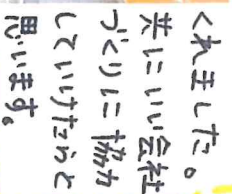 くれました。
共にいい会社
づくりに協力
していけたらと
思います。